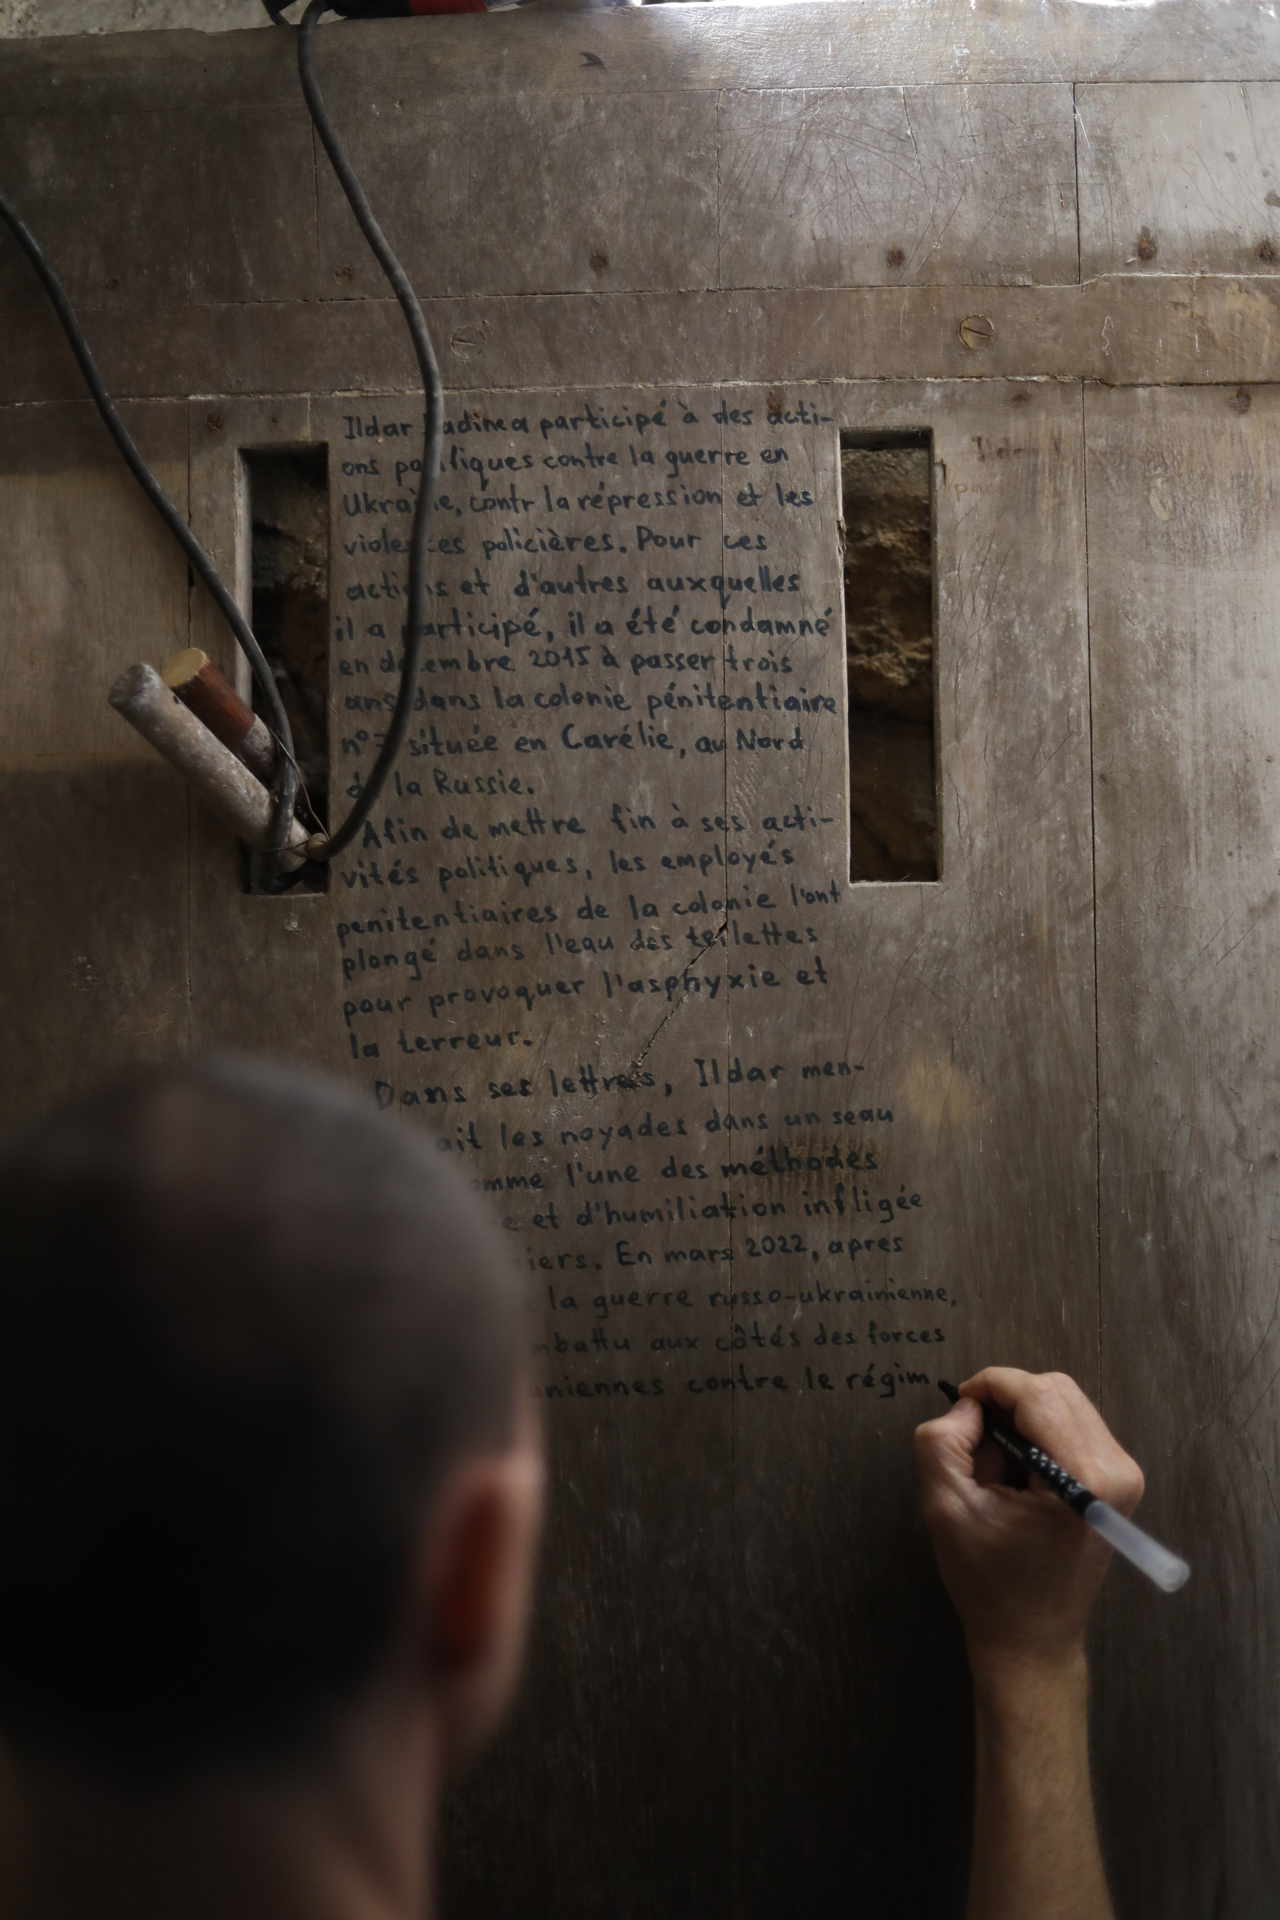 Ildar adinea participé à des acti-
ons pa ifiques contre la guerre en
Ukrai e, contr la répression et les
viole ces policières. Pour ces
acti ns et d'autres auxquelles
il a participé, il a été condamné
en de embre 2015 à passer trois
ans dans la colonie pénitentiaire
n° située en Carélie, au Nord
d la Russie.
Afin de mettre fin à ses acti-
vités politiques, les employés
penitentiaires de la colonie l'ont
plongé dans l'eau des toilettes
pour provoquer l'asphyxie et
la terreur.
Dans ses lettres, Ildar men-
ait les noyades dans un seau
omme l'une des méthodes
e et d'humiliation infligée
iers. En mars 2022, apres
la guerre russo-ukrainienne,
mbattu aux côtés des forces
aniennes contre le régim